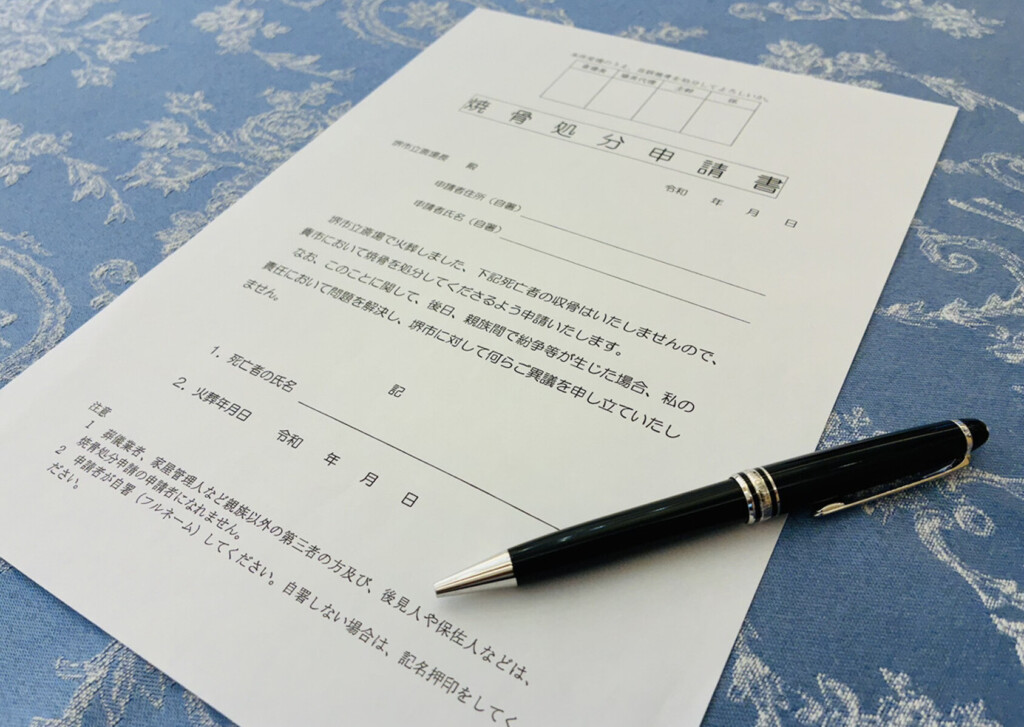 斎場長
焼骨処分申請書
堺市立斎場長 殿
令和 年 月 日
申請者住所(自署)
申請者氏名(自署)
堺市立斎場で火葬しました、下記死亡者の収骨はいたしませんので、
貴市において焼骨を処分してくださるよう申請いたします。
なお、このことに関して、後日、親族間で紛争等が生じた場合、私の
責任において問題を解決し、堺市に対して何らご異議を申し立ていたし
ません。
記
1.死亡者の氏名
2.火葬年月日 令和 年 月 日
注意
1 葬儀業者、家屋管理人など親族以外の第三者の方及び、後見人や保佐人などは、
焼骨処分申請の申請者になれません。
2 申請者が自署(フルネーム)してください。自署しない場合は、記名押印をしてく
ださい。